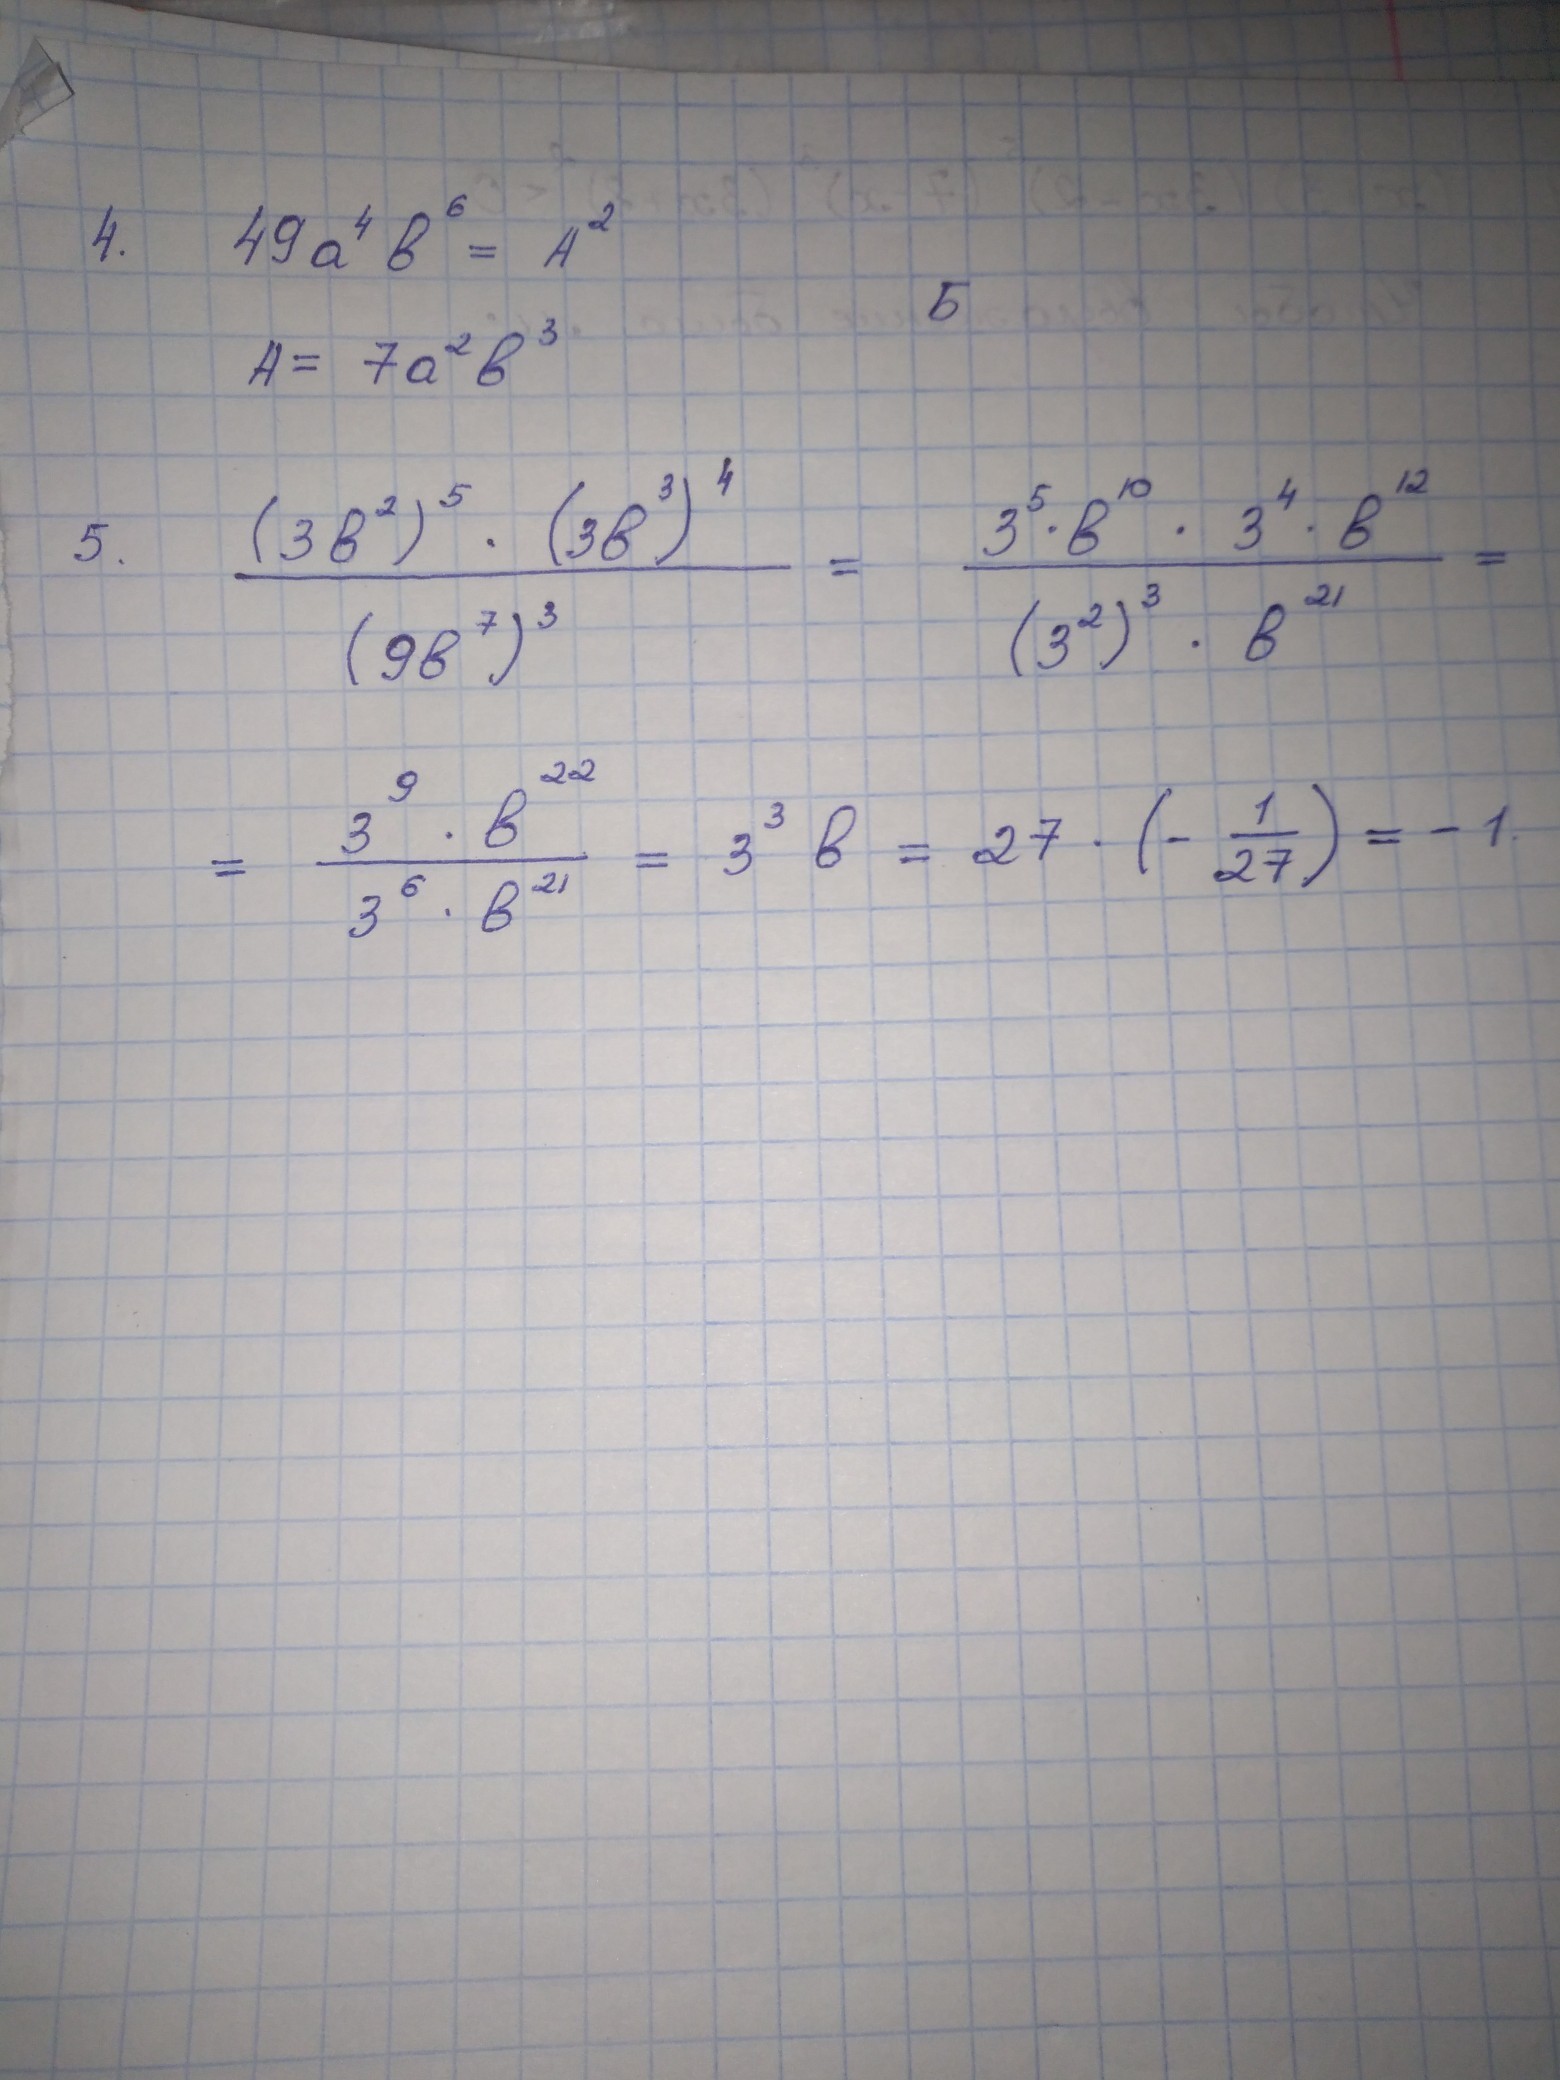 4. 49a⁴в⁶ = A²
Б
A = 7a²в³
5. (3в²)⁵ · (3в³)⁴ / (9в⁷)³ = 3⁵ · в¹⁰ · 3⁴ · в¹² / (3²)³ · в²¹ =
= 3⁹ · в²² / 3⁶ · в²¹ = 3³ в = 27 · (- 1/27) = - 1.